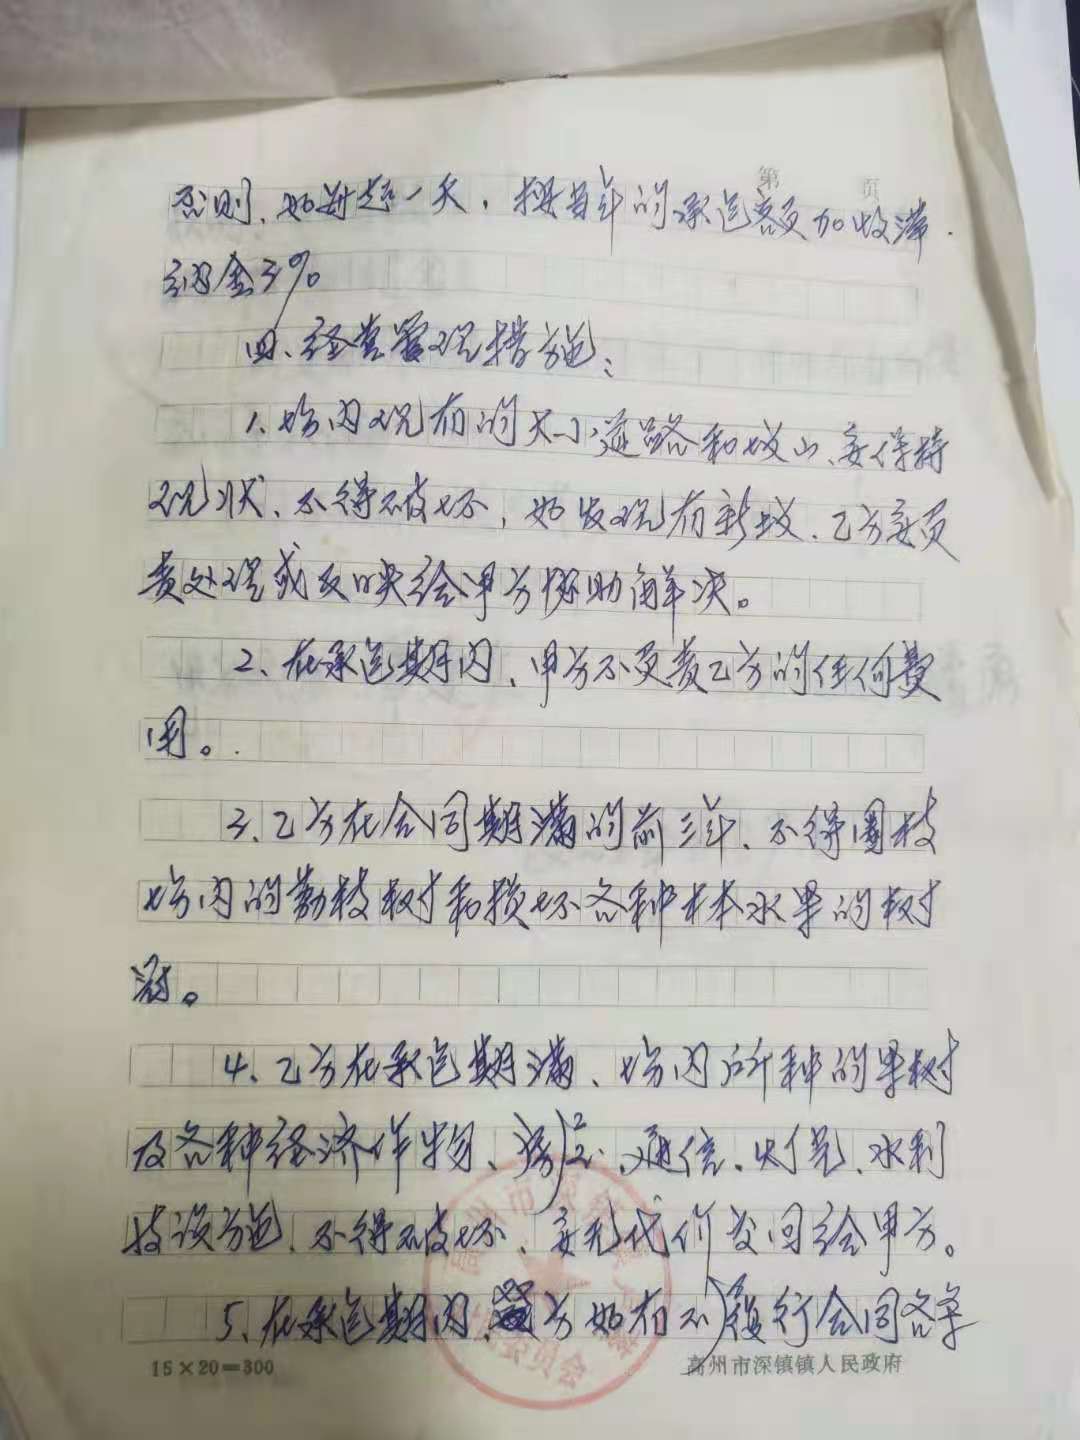 第　页
否则、如超过一天，按当年的承包额加收滞
纳金3%
四、经营管理措施：
1、场内现有的大小道路和坟山、要保持
现状、不得破坏，如发现有新坟、乙方要负
责处理或反映给甲方协助解决。
2、在承包期内、甲方不负责乙方的任何费
用。
3、乙方在合同期满的前三年、不得圈枝
场内的荔枝树和损坏各种木本水果的树
冠。
4、乙方在承包期满、场内所种的果树
及各种经济作物、房屋、通信、灯光、水利
设施、不得破坏、要无代价交回给甲方。
5、在承包期内、方如有不履行合同各字
15×20=300　高州市深镇镇人民政府